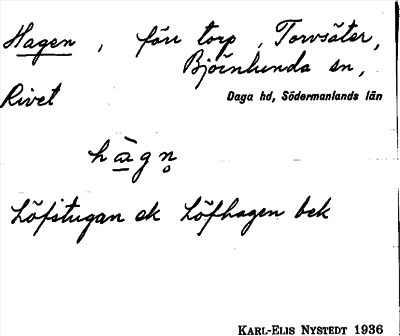 Hagen, förr torp, Torvsäter,
Björnlunda sn,
Rivet Daga hd, Södermanlands län
hàgn̥
Löfstugan ek Löfhagen bek
KARL-ELIS NYSTEDT 1936